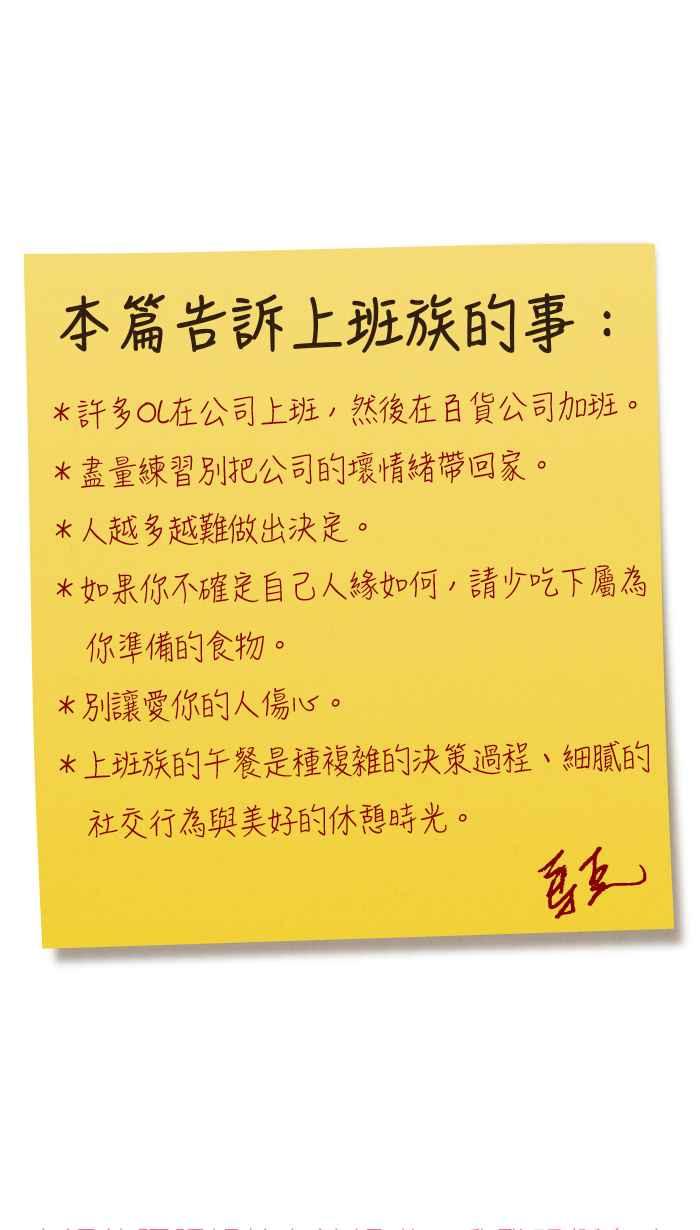 本篇告訴上班族的事：
＊許多OL在公司上班，然後在百貨公司加班。
＊盡量練習別把公司的壞情緒帶回家。
＊人越多越難做出決定。
＊如果你不確定自己人緣如何，請少吃下屬為
你準備的食物。
＊別讓愛你的人傷心。
＊上班族的午餐是種複雜的決策過程、細膩的
社交行為與美好的休憩時光。